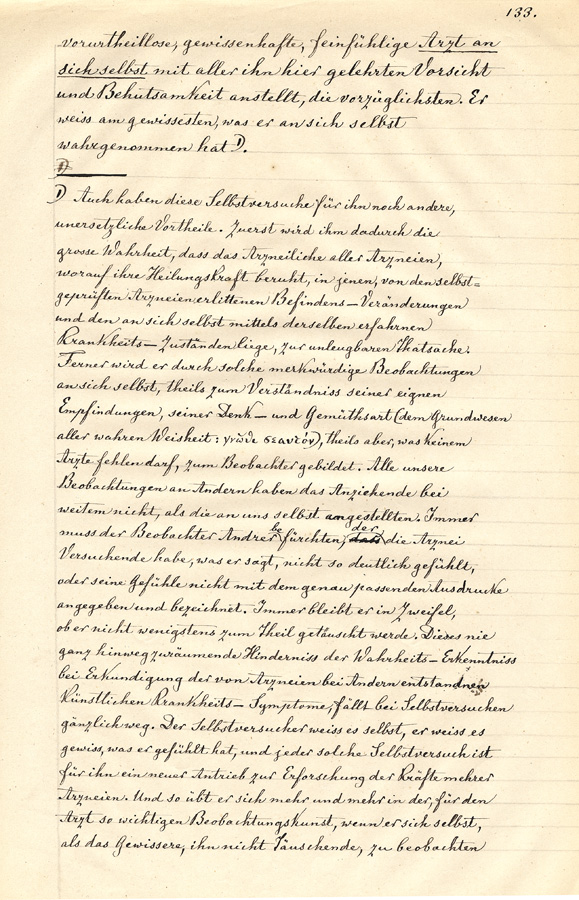 133.
vorurtheillose, gewissenhafte, feinfühlige Arzt an
sich selbst mit aller ihn hier gelehrten Vorsicht
und Behutsamkeit anstellt, die vorzüglichsten. Er
weiss am gewissesten, was er an sich selbst
wahrgenommen hat 1).
1)
1) Auch haben diese Selbstversuche für ihn noch andere,
unersetzliche Vortheile. Zuerst wird ihm dadurch die
grosse Wahrheit, dass das Arzneiliche aller Arzneien,
worauf ihre Heilungskraft beruht, in jenen, von den selbst=
geprüften Arzneien erlittenen Befindens-Veränderungen
und den an sich selbst mittels derselben erfahrnen
Krankheits-Zuständen liege, zur unleugbaren Thatsache.
Ferner wird er durch solche merkwürdige Beobachtungen
an sich selbst, theils zum Verständniss seiner eignen
Empfindungen, seiner Denk- und Gemüthsart (dem Grundwesen
aller wahren Weisheit: γνῶθι σεαυτόν), theils aber, was keinem
Arzte fehlen darf, zum Beobachter gebildet. Alle unsere
Beobachtungen an Andern haben das Anziehende bei
weitem nicht, als die an uns selbst angestellten. Immer
muss der Beobachter Andrer befürchten, der die Arznei
Versuchende habe, was er sagt, nicht so deutlich gefühlt,
oder seine Gefühle nicht mit dem genau passenden Ausdrucke
angegeben und bezeichnet. Immer bleibt er in Zweifel,
ob er nicht wenigstens zum Theil getäuscht werde. Dieses nie
ganz hinwegzuräumende Hinderniss der Wahrheits-Erkenntniss
bei Erkundigung der von Arzneien bei Andern entstandnen
künstlichen Krankheits-Symptome, fällt bei Selbstversuchen
gänzlich weg. Der Selbstversucher weiss es selbst, er weiss es
gewiss, was er gefühlt hat, und jeder solche Selbstversuch ist
für ihn ein neuer Antrieb zur Erforschung der Kräfte mehrer
Arzneien. Und so übt er sich mehr und mehr in der, für den
Arzt so wichtigen Beobachtungskunst, wenn er sich selbst,
als das Gewissere, ihn nicht Täuschende, zu beobachten